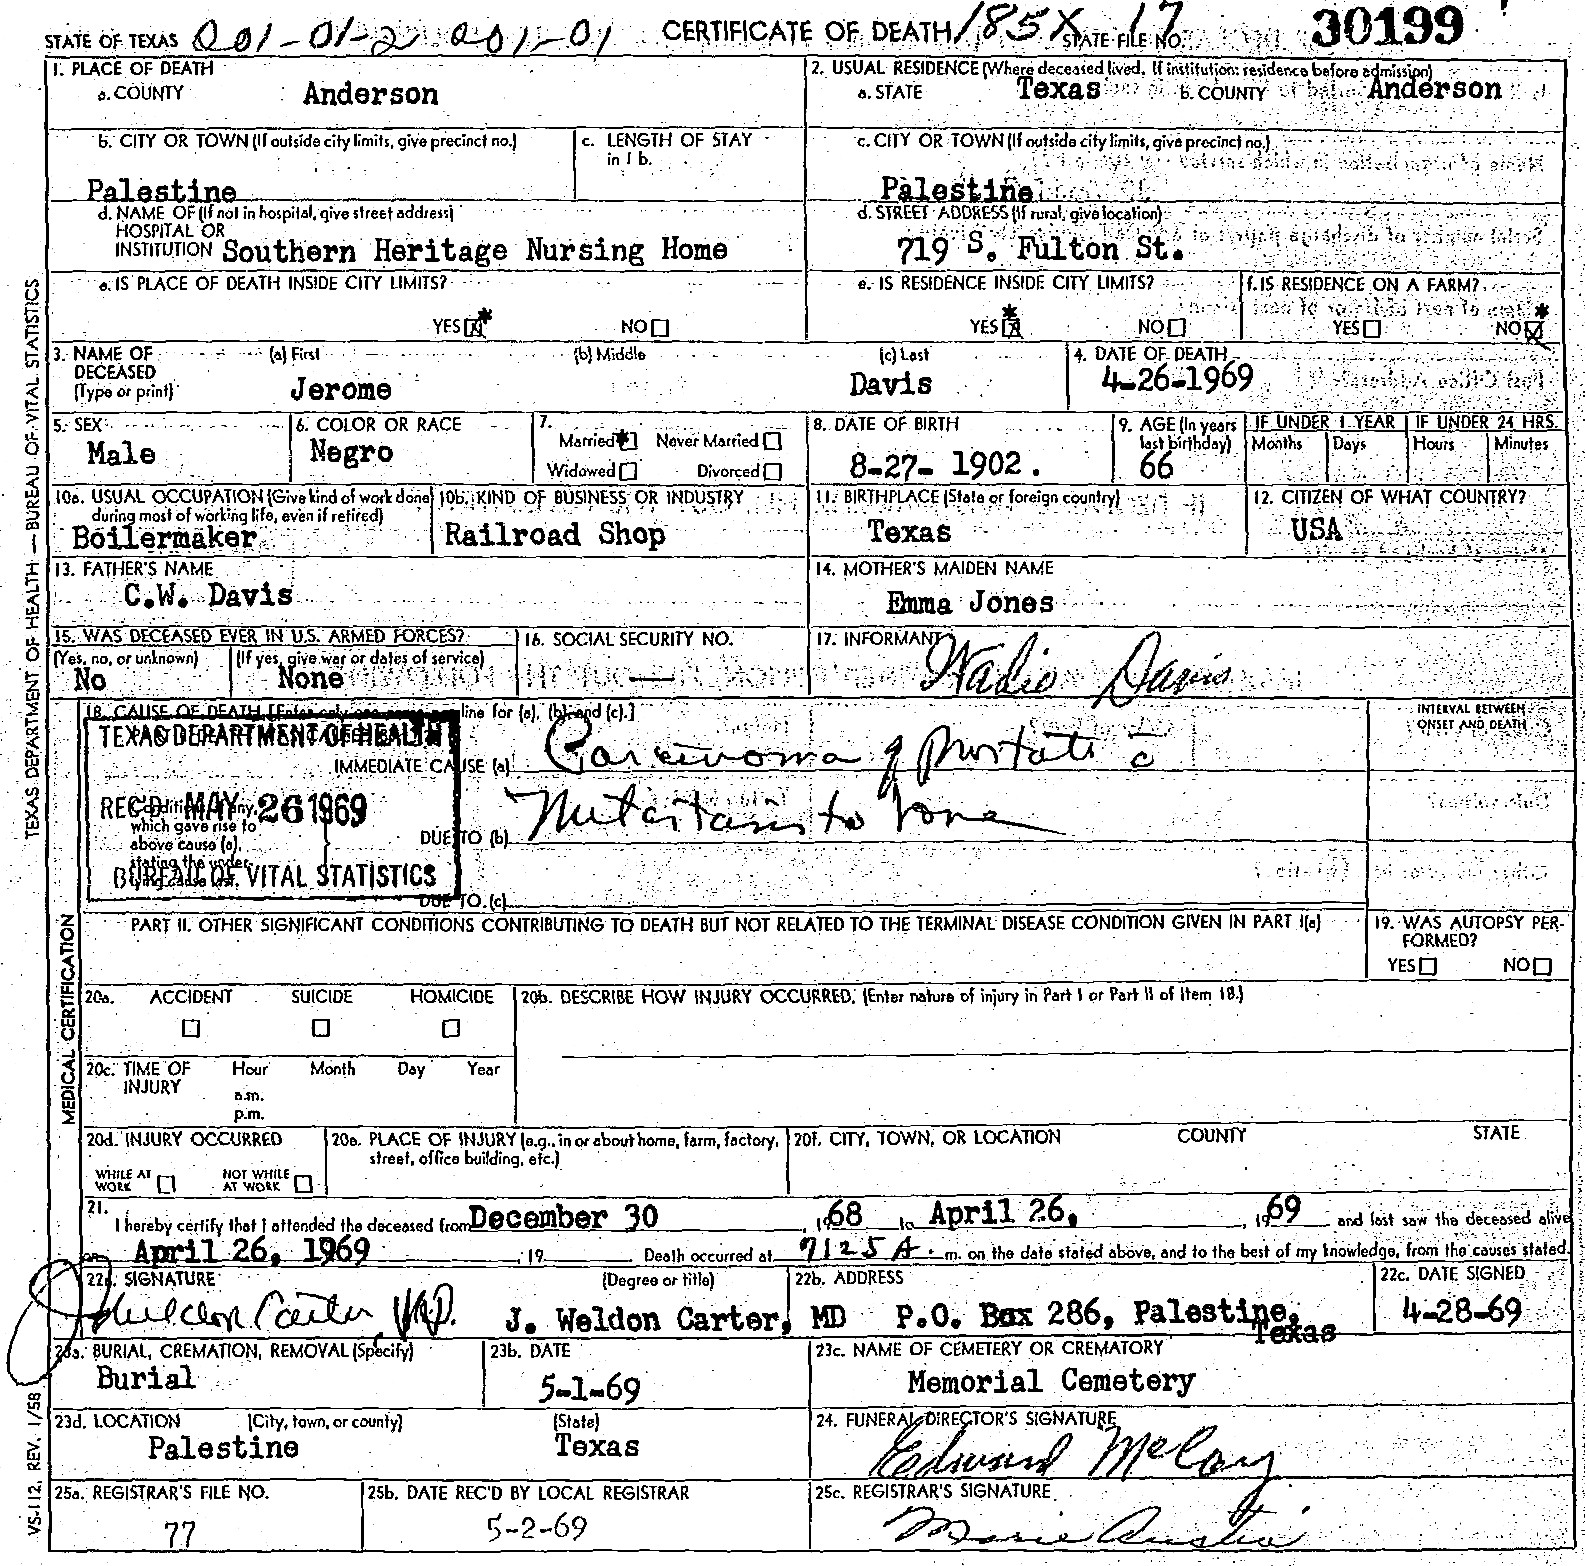 STATE OF TEXAS 001-01-2 001-01 CERTIFICATE OF DEATH 185X STATE FILE NO. 17 30199
1. PLACE OF DEATH
a. COUNTY Anderson
2. USUAL RESIDENCE (Where deceased lived. If institution: residence before admission)
a. STATE Texas b. COUNTY Anderson
b. CITY OR TOWN (If outside city limits, give precinct no.) c. LENGTH OF STAY in 1 b.
Palestine
c. CITY OR TOWN (If outside city limits, give precinct no.)
Palestine
d. NAME OF (If not in hospital, give street address)
HOSPITAL OR
INSTITUTION Southern Heritage Nursing Home
d. STREET ADDRESS (If rural, give location)
719 S. Fulton St.
e. IS PLACE OF DEATH INSIDE CITY LIMITS?
YES X * NO
e. IS RESIDENCE INSIDE CITY LIMITS?
YES X * NO
f. IS RESIDENCE ON A FARM?
YES NO X *
3. NAME OF DECEASED (Type or print) (a) First (b) Middle (c) Last
Jerome Davis
4. DATE OF DEATH
4-26-1969
5. SEX
Male
6. COLOR OR RACE
Negro
7. Married * Never Married
Widowed Divorced
8. DATE OF BIRTH
8-27- 1902.
9. AGE (In years last birthday)
66
IF UNDER 1 YEAR IF UNDER 24 HRS.
Months Days Hours Minutes
10a. USUAL OCCUPATION (Give kind of work done during most of working life, even if retired)
Boilermaker
10b. KIND OF BUSINESS OR INDUSTRY
Railroad Shop
11. BIRTHPLACE (State or foreign country)
Texas
12. CITIZEN OF WHAT COUNTRY?
USA
13. FATHER'S NAME
C.W. Davis
14. MOTHER'S MAIDEN NAME
Emma Jones
15. WAS DECEASED EVER IN U.S. ARMED FORCES?
(Yes, no, or unknown) (If yes, give war or dates of service)
No None
16. SOCIAL SECURITY NO.
—
17. INFORMANT
Davis
18. CAUSE OF DEATH [Enter only one line for (a), (b) and (c).]
INTERVAL BETWEEN ONSET AND DEATH
TEXAS DEPARTMENT OF HEALTH
REC'D MAY 26 1969
BUREAU OF VITAL STATISTICS
IMMEDIATE CAUSE (a) Carcinoma of prostate c̄
which gave rise to
above cause (a),
stating the under-
lying cause last.
DUE TO (b) Metastasis to bone
DUE TO (c)
PART II. OTHER SIGNIFICANT CONDITIONS CONTRIBUTING TO DEATH BUT NOT RELATED TO THE TERMINAL DISEASE CONDITION GIVEN IN PART I(a)
19. WAS AUTOPSY PERFORMED?
YES NO
20a. ACCIDENT SUICIDE HOMICIDE
20b. DESCRIBE HOW INJURY OCCURRED. (Enter nature of injury in Part I or Part II of Item 18.)
20c. TIME OF INJURY Hour Month Day Year
a.m.
p.m.
20d. INJURY OCCURRED
WHILE AT WORK NOT WHILE AT WORK
20e. PLACE OF INJURY (e.g., in or about home, farm, factory, street, office building, etc.)
20f. CITY, TOWN, OR LOCATION COUNTY STATE
21. I hereby certify that I attended the deceased from December 30, 1968 to April 26, 1969 and last saw the deceased alive
on April 26, 1969, 19 Death occurred at 7:25 A. m. on the date stated above, and to the best of my knowledge, from the causes stated.
22a. SIGNATURE (Degree or title)
J Weldon Carter M.D. J. Weldon Carter, MD
22b. ADDRESS
P.O. Box 286, Palestine, Texas
22c. DATE SIGNED
4-28-69
23a. BURIAL, CREMATION, REMOVAL (Specify)
Burial
23b. DATE
5-1-69
23c. NAME OF CEMETERY OR CREMATORY
Memorial Cemetery
23d. LOCATION (City, town, or county) (State)
Palestine Texas
24. FUNERAL DIRECTOR'S SIGNATURE
Edward McCoy
25a. REGISTRAR'S FILE NO.
77
25b. DATE REC'D BY LOCAL REGISTRAR
5-2-69
25c. REGISTRAR'S SIGNATURE
Marie Austin
TEXAS DEPARTMENT OF HEALTH — BUREAU OF VITAL STATISTICS
MEDICAL CERTIFICATION
VS-112, REV. 1/58